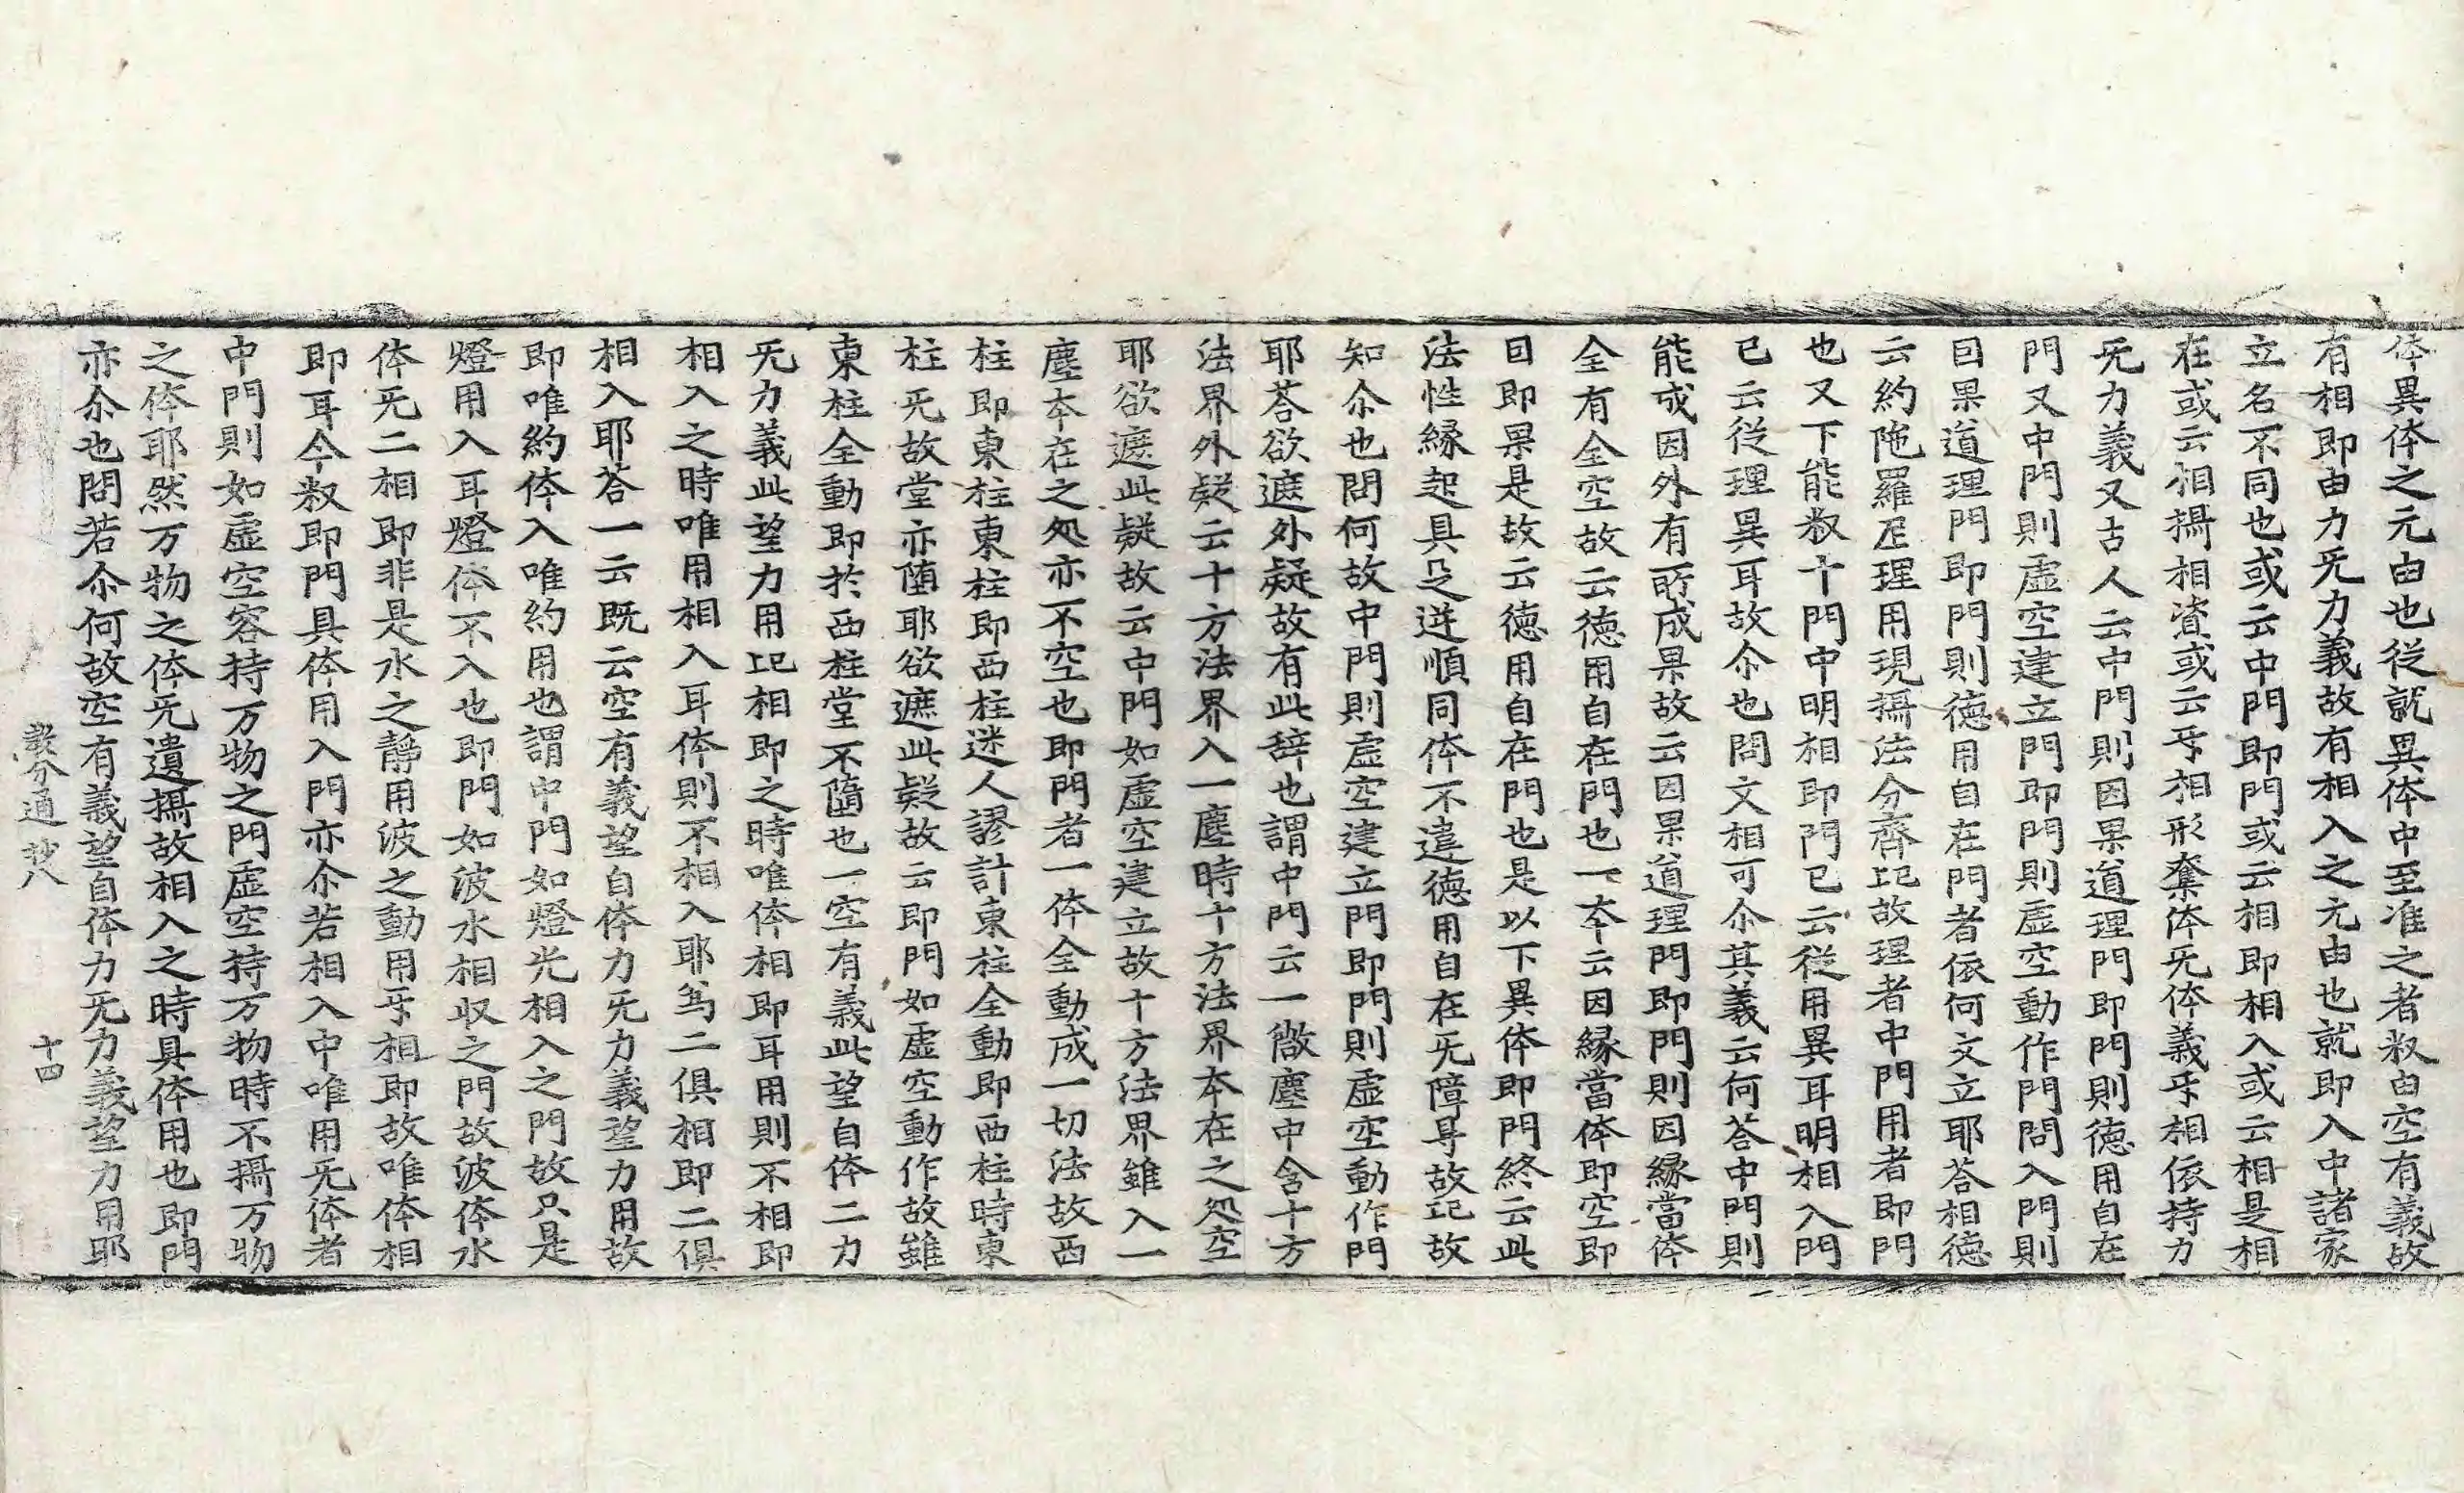 体異体之元由也從就異体中至准之者叙由空有義故
有相即由力无力義故有相入之元由也就即入中諸家
立名不同也或云中門即門或云相即相入或云相是相
在或云相攝相資或云乎相形奪体无体義乎相依持力
无力義又古人云中門則因果道理門即門則徳用自在
門又中門則虛空建立門即門則虛空動作門問入門則
曰果道理門即門則徳用自在門者依何文立耶荅相徳
云約陁羅𡰱理用現攝法分齊記故理者中門用者即門
也又下能叙十門中明相即門已云從用異耳明相入門
已云從理異耳故尒也問文相可尒其義云何荅中門則
能成因外有所成果故云因果道理門即門則因縁當体
全有全空故云徳用自在門也一夲云因縁當体即空即
曰即果是故云徳用自在門也是以下異体即門終云此
法性縁起具足逆順同体不違徳用自在无障㝵故記故
知尒也問何故中門則虛空建立門即門則虛空動作門
耶荅欲遮外疑故有此辞也謂中門云一㣲塵中含十方
法界外疑云十方法界入一塵時十方法界夲在之処空
耶欲遮此疑故云中門如虛空建立故十方法界雖入一
塵夲在之処亦不空也即門者一体全動成一切法故西
柱即東柱東柱即西柱迷人謬計東柱全動即西柱時東
柱无故堂亦堕耶欲遮此疑故云即門如虛空動作故雖
東柱全動即扵西柱堂不隨也一空有義此望自体二力
无力義此望力用記相即之時唯体相即耳用則不相即
相入之時唯用相入耳体則不相入耶爲二俱相即二俱
相入耶荅一云旣云空有義望自体力无力義望力用故
即唯約体入唯約用也謂中門如燈光相入之門故只是
燈用入耳燈体不入也即門如波水相収之門故波体水
体无二相即非是水之靜用波之動用乎相即故唯体相
即耳今叙即門具体用入門亦尒若相入中唯用无体者
中門則如虛空容持万物之門虛空持万物時不攝万物
之体耶然万物之体无遺攝故相入之時具体用也即門
亦尒也問若尒何故空有義望自体力无力義望力用耶
教分通抄八　十四